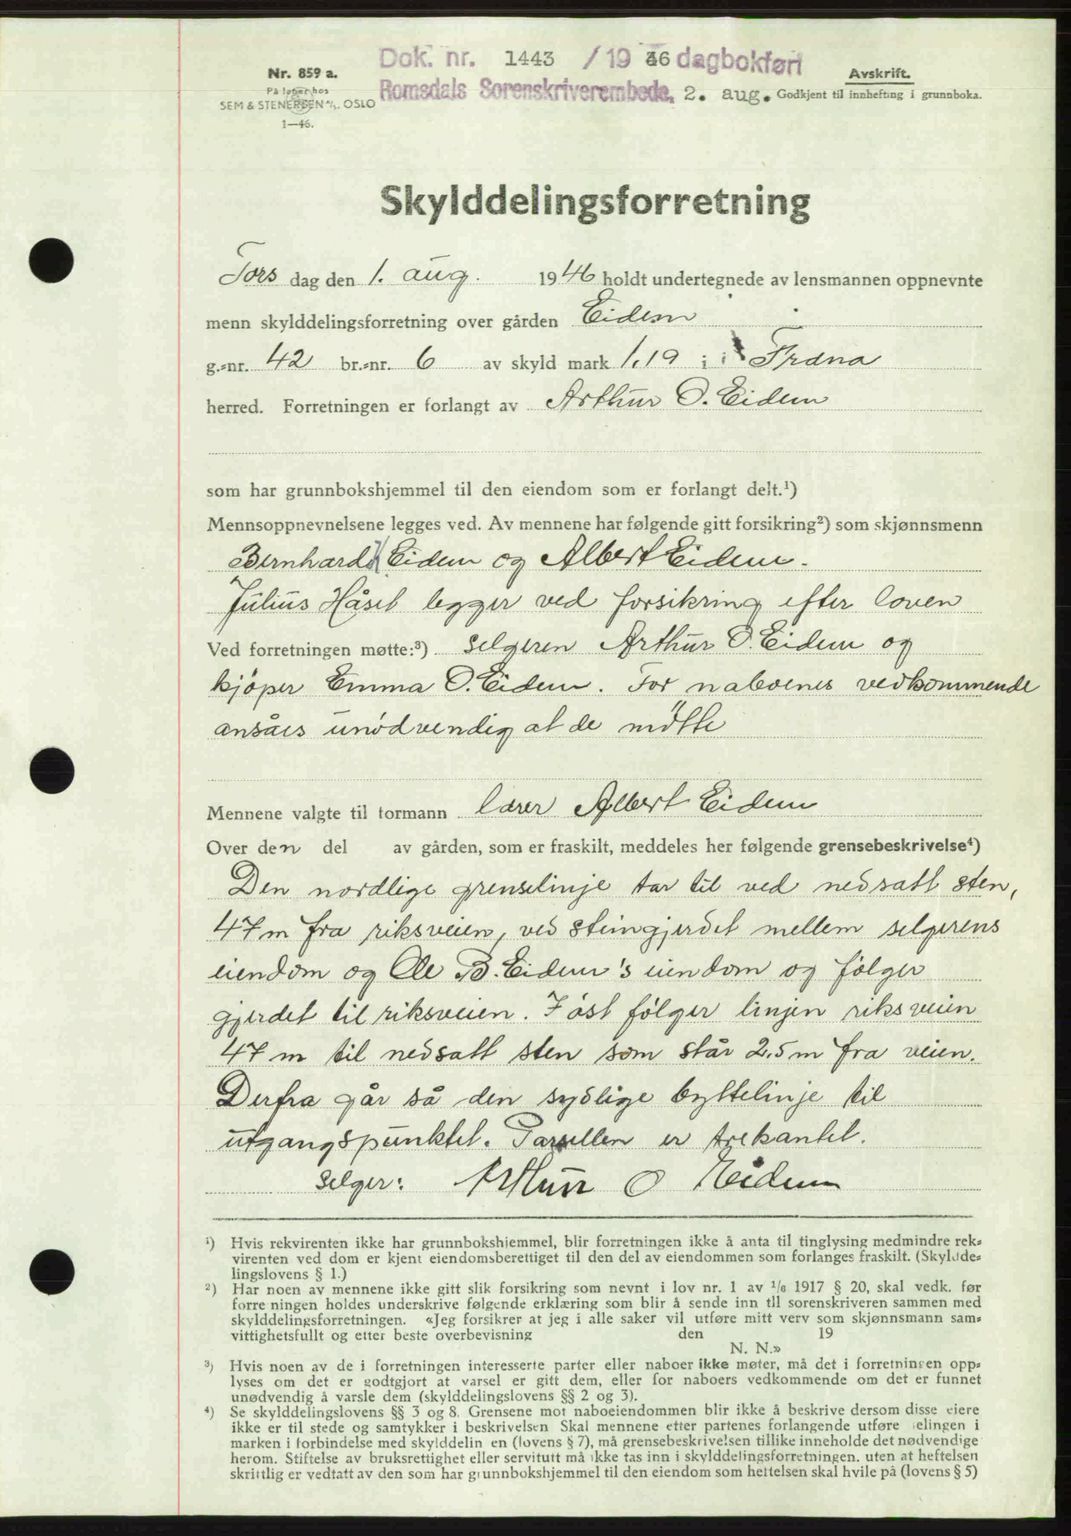 Dok. nr. 1443 / 19 46 dagbokført
Romsdals Sorenskriverembede, 2. aug.
Nr. 859 a.
På lager hos
SEM & STENERSEN A/S, OSLO
1—46.
Avskrift.
Godkjent til innhefting i grunnboka.
Skylddelingsforretning
Tors dag den 1. aug. 1946 holdt undertegnede av lensmannen oppnevnte
menn skylddelingsforretning over gården Eidem
g.-nr. 42 br.-nr. 6 av skyld mark 1.19 i Fræna
herred. Forretningen er forlangt av Arthur O. Eidem
som har grunnbokshjemmel til den eiendom som er forlangt delt.¹)
Mennsoppnevnelsene legges ved. Av mennene har følgende gitt forsikring²) som skjønnsmenn
Bernhard Eidem og Albert Eidem.
Julius Håset legger ved forsikring efter loven
Ved forretningen møtte:³) selgeren Arthur O. Eidem og
kjøper Emma O. Eidem. For naboenes vedkommende
ansåes unødvendig at de møtte
Mennene valgte til formann lærer Albert Eidem
Over den del av gården, som er fraskilt, meddeles her følgende grensebeskrivelse⁴)
Den nordlige grenselinje tar til ved nedsatt sten,
47 m fra riksveien, ved steingjerdet mellem selgerens
eiendom og Ole B. Eidem's eiendom og følger
gjerdet til riksveien. I øst følger linjen riksveien
47 m til nedsatt sten som står 2.5 m fra veien.
Derfra går så den sydlige byttelinje til
utgangspunktet. Parsellen er trekantet.
Selger: Arthur O Eidem
¹) Hvis rekvirenten ikke har grunnbokshjemmel, blir forretningen ikke å anta til tinglysing medmindre rek-
virenten ved dom er kjent eiendomsberettiget til den del av eiendommen som forlanges fraskilt. (Skyldde-
lingslovens § 1.)
²) Har noen av mennene ikke gitt slik forsikring som nevnt i lov nr. 1 av 1/6 1917 § 20, skal vedk. før
forretningen holdes underskrive følgende erklæring som blir å sende inn til sorenskriveren sammen med
skylddelingsforretningen. «Jeg forsikrer at jeg i alle saker vil utføre mitt verv som skjønnsmann sam-
vittighetsfullt og etter beste overbevisning den 19
N. N.»
³) Hvis noen av de i forretningen interesserte parter eller naboer ikke møter, må det i forretningen opp-
lyses om det er godtgjort at varsel er gitt dem, eller for naboers vedkommende om det er funnet
unødvendig å varsle dem (skylddelingslovens §§ 2 og 3).
⁴) Se skylddelingslovens §§ 3 og 8. Grensene mot naboeiendommen blir ikke å beskrive dersom disse eiere
ikke er til stede og samtykker i beskrivelsen Skal mennene etter partenes forlangende utføre delingen i
marken i forbindelse med skylddelingen (lovens § 7), må grensebeskrivelsen tillike inneholde det nødvendige
herom. Stiftelse av bruksrettighet eller servitutt må ikke tas inn i skylddelingsforretningen, uten at heftelsen
skriftlig er vedtatt av den som har grunnbokshjemmel til den eiendom som heftelsen skal hvile på (lovens § 5)